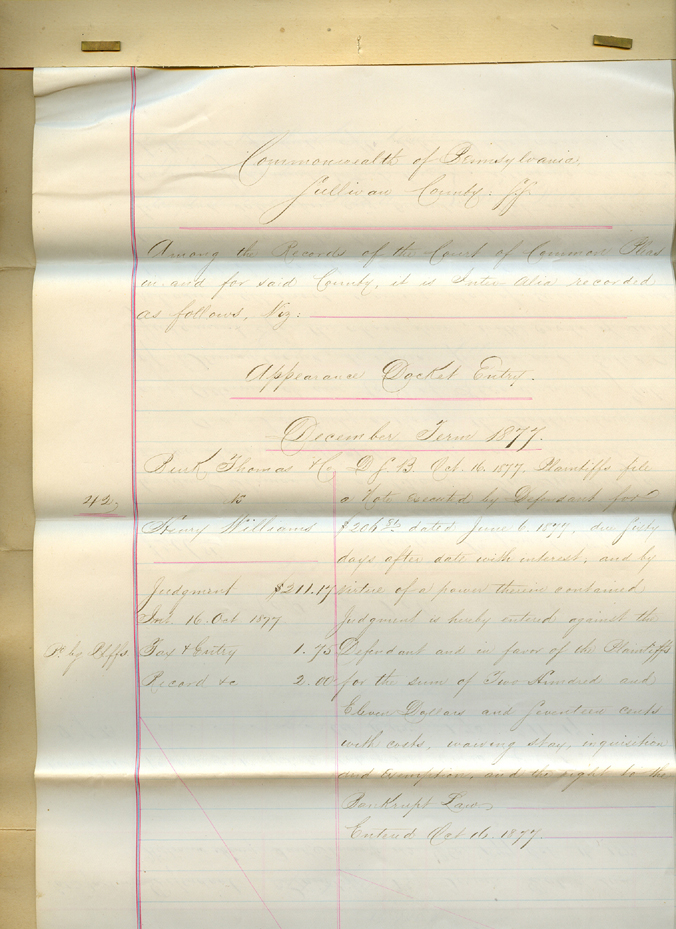 Commonwealth of Pennsylvania,
Sullivan County. SS
Among the Records of the Court of Common Pleas
in and for said County, it is Inter Alia recorded
as follows, Viz:
Appearance Docket Entry.
December Term 1877.
Thomas & Co
42
vs
Henry Williams
Judgment $211.17
Int. 16. Oct. 1877
Pd by Plffs Tax & Entry 1.75
Record &c 2.00
D.S.B. Oct. 16. 1877. Plaintiffs file
a Note executed by Defendant for
$206 dated June 6. 1877, due sixty
days after date with interest, and by
virtue of a power therein contained
Judgment is hereby entered against the
Defendant and in favor of the Plaintiffs
for the sum of Two Hundred and
Eleven Dollars and Seventeen cents
with costs, waiving stay, inquisition
and exemption, and the right to the
Bankrupt Law
Entered Oct. 16. 1877.